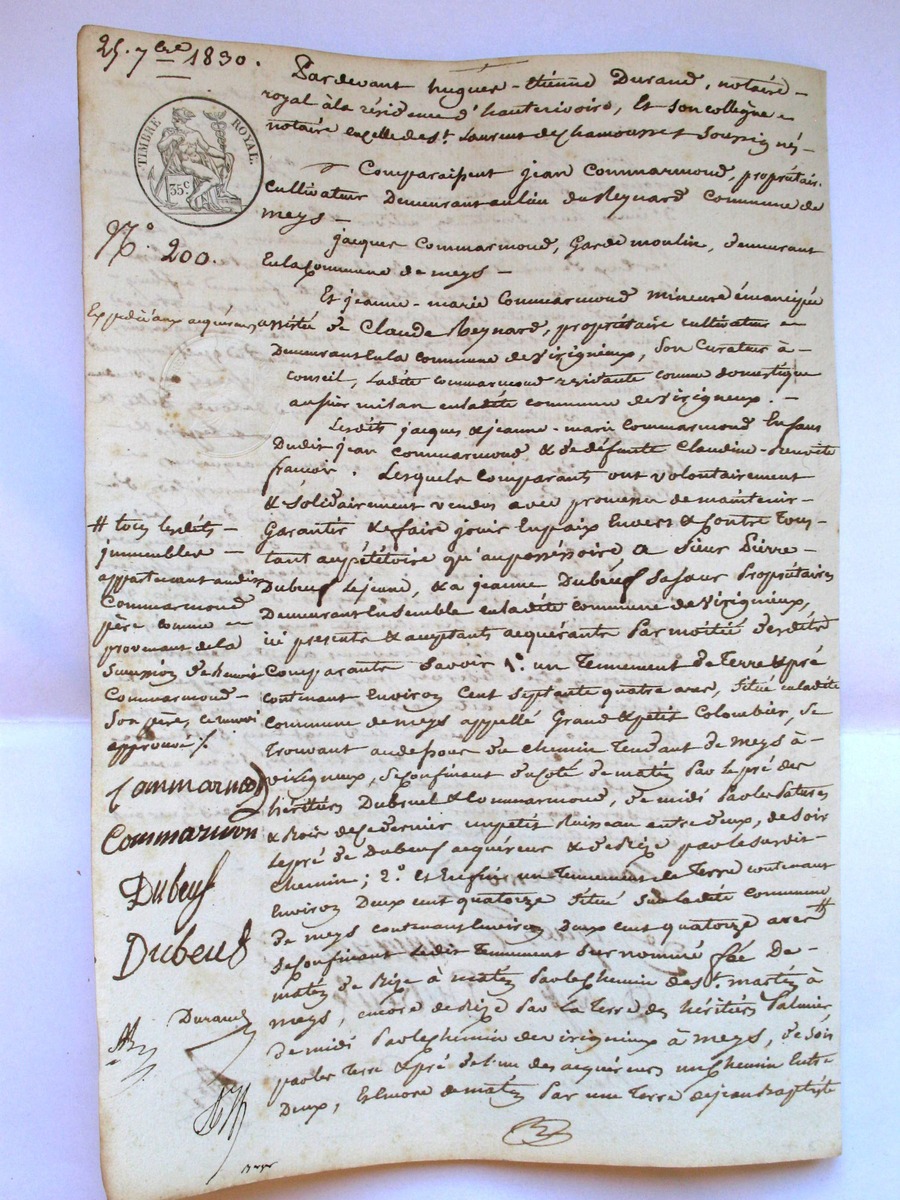 25. 7bre 1830.
TIMBRE ROYAL.
35c
N.° 200.
Expédié aux acquéreurs
Pardevant hugues-étienne Durand, notaire
royal à la résidence d'hauterivoire, Et son collègue
notaire en celle de St. Laurent de Chamousset Soussignés
Comparaissent jean Commarmond, propriétaire
Cultivateur Demeurant au lieu du Reynard Commune de
meys
jacques Commarmond, Garde moulin, demeurant
En la Commune de meys
Et jeanne-marie Commarmond mineure émancipée
assistée de Claude Reynard, propriétaire cultivateur
Demeurant En la commune de Virigneux, Son Curateur à
Conseil, Ladite commarmond residante comme domestique
en ladite commune de Virigneux.
Lesdits jacques & jeanne-marie Commarmond Enfans
Dudit jean Commarmond & de défunte Claudine-Benoite
françois. Lesquels Comparants ont volontairement
& Solidairement vendus avec promesse de maintenir
Garantir & faire jouir En paix Envers & Contre Tous
tant au pétitoire qu'au possessoire, a Sieur Pierre
Dubeuf Lejeune, & a jeanne Dubeuf Sa Sœur Propriétaires
Demeurant Ensemble en ladite commune de Virigneux,
ici presents & acceptants acquérants Par moitié desdits
Comparants Savoir 1.° un Tennement de Terre & pré
contenant Environ Cent Septante quatre ares, Situé en ladite
Commune de meys appellé Grand & petit Colombier, Se
Trouvant au dessous du chemin Tendant de Meys à
virigneux, Se Confinant du coté de matin Par le pré des
héritiers Dubeuf & Commarmond, de midi Par les Patures
& Bois de ce dernier un petit Ruisseau entre deux, de Soir
le pré de Dubeuf acquereur & de Bize par le Susdit
Chemin; 2.° Et Enfin un Tennement de Terre contenant
Environ Deux cent quatorze Situé Sur ladite commune
de meys contenant Environ Deux cent quatorze ares #
Se Confinant Ledit Tennement Surnommé fée De
matin de Bize à matin Par le Chemin de St. martin à
meys, encore de Bize Par La Terre des héritiers Palmier,
de midi Par le Chemin de virigneux à Meys, de Soir
par les Terre & pré de l'un des acquéreurs un Chemin Entre
Deux, Et Encore de matin Par une Terre de jean Baptiste
# tous lesdits
immeubles
appartenant audit
Commarmond
père comme
provenant de la
Succession de benoit
Commarmond
Son père, ce renvoi
approuvé /.
Commarmond
Commarmon
Dubeuf
Dubeuf
Durand